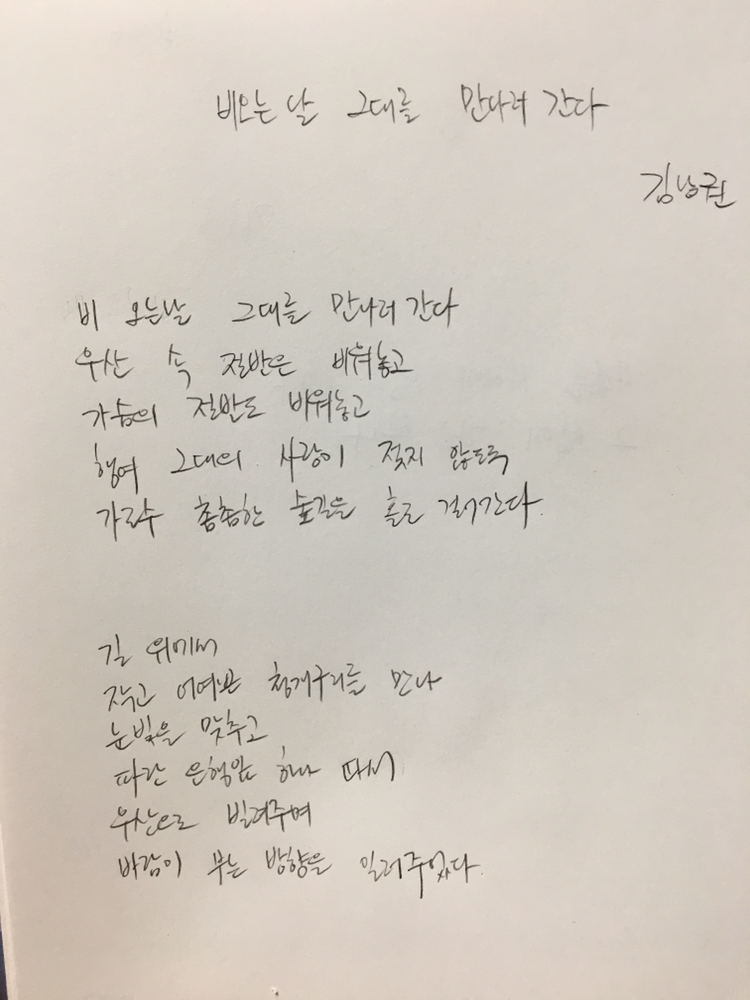 비오는 날 그대를 만나러 간다
김남권
비 오는날 그대를 만나러 간다
우산 속 절반은 비워놓고
가슴의 절반도 비워놓고
행여 그대의 사랑이 젖지 않도록
가로수 촘촘한 숲길을 홀로 걸어간다.
길 위에서
작고 어여쁜 청개구리를 만나
눈빛을 맞추고
파란 은행잎 하나 따서
우산으로 빌려주며
바람이 부는 방향을 일러주었다.